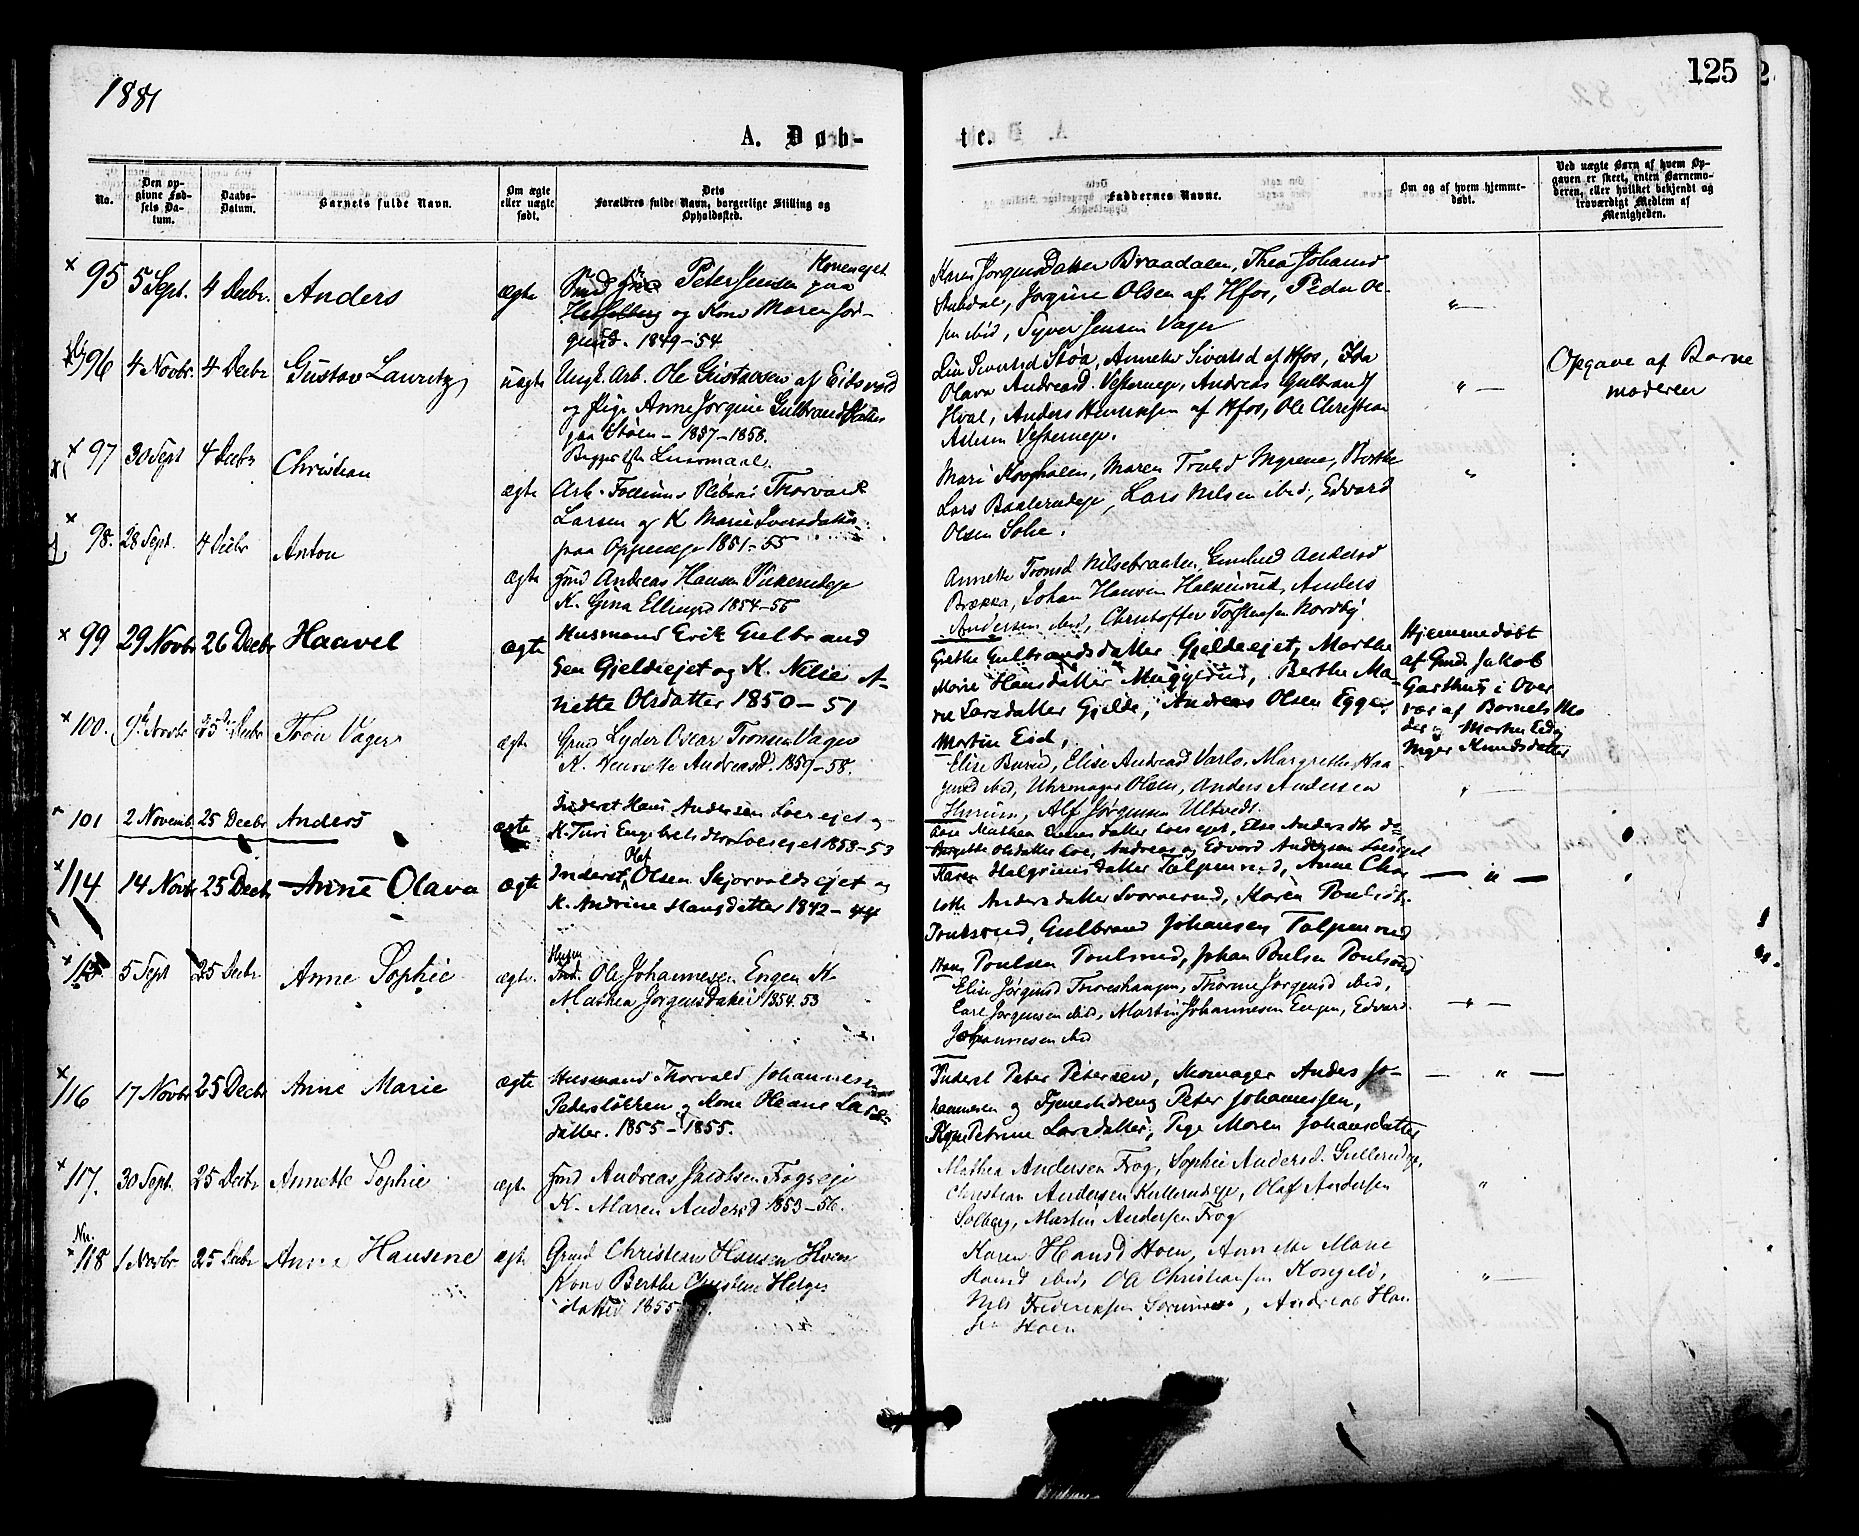 1881
125
A. Døb-
te.
No.
Den op-
givne Fød-
sels Da-
tum.
Daabs-
Datum.
Barnets fulde Navn.
Om ægte
eller uægte
født.
Dets
Forældres fulde Navn, borgerlige Stilling og
Opholdssted.
Faddernes Navne.
Om og af hvem hjemme-
døbt.
Ved uægte Børn af hvem Op-
gaven er skeet, enten Barnemo-
deren, eller hvilket bekjendt og
troværdigt Medlem af
Menigheden.
95 5 Sept. 4 Decbr. Anders ægte
Peter Jensen paa
og Kone Maren Jør-
gensd. 1849-54
Karen Jørgensdatter Braadalen, Thea Johansd
Jørgine Olsen af Hfos, Peder Ol-
sen ibid, Syver Jensen Vager
96 4 Novbr. 4 Decbr Gustav Lauritz uægte
Ungk. Arb. Ole Gustavsen af Eidsvold
og Pige Anne Jørgine Gulbrandsdatter
paa Støen - 1857-1858.
Begges 1ste Leiermaal.
Sivertsd Støa, Annette Sivertsd af Hfos, Ida
Olava Andreasd. Vesterneje, Andreas Gulbrands
Hval, Anders Henriksen af Hfos, Ole Christian
Vesterneje.
Opgave af Barne
moderen
97 30 Sept 4 Decbr Christian ægte
Arb. Thorvald
Larsen og K Marie Iversdatter
paa Oppeneje 1851-55
Mari Maren Berthe
Lars Lars Nilsen ibid, Edvard
Olsen
98. 28 Sept. 4 Decbr Anton ægte
Andreas Hansen
K. Gina Ellingsd 1854-56
Annette Tronsd Nilsebraaten, Gunhild
Johan Hansen Anders
Andersen ibid, Christoffer Torstensen Nordby
99 29 Novbr 26 Decbr Haavel ægte
Husmand Erik Gulbrand
sen Gjeldeejet og K. Nilie A-
nette Olsdatter 1850-51
Grethe Gulbrandsdatter Gjeldeejet, Marthe
Marie Hansdatter Berthe Ma-
rie Larsdatter Gjelde, Andreas Olsen Egge,
Martin Eid,
Hjemmedøbt
af Gmd. Jakob
Garthus i Over
vær af Barnets Mo
der og Morten Eid og
Inger Knudsdatter
100. 9de Novbr 25de Decbr Tron Vager ægte
Grmd Lyder Oscar Tronsen Vager
K. Henriette Andreasd. 1857-58.
Elise Burud, Elise Andreasd Varlo, Margrethe Haa
gensd ibid, Uhrmager Olsen, Anders Andersen
Hurum, Alf Jørgensen Ultvedt.
101 2 Novemb. 25 Decbr Anders ægte
Inderst Hans Andersen Loeejet og
K. Turi Engebretsdtr Loeejet 1853-53
Mathea datter Loeejet, Else Andersdtr do
Olsdatter Loe, Andreas og Edvard Andersen Loeejet
114 14 Novbr 25 Decbr Anne Olava ægte
Inderst Olaf Olsen Skjørvoldsejet og
K. Andrine Hansdatter 1842-44
Karen Halgrimsdatter Tolpenrud, Anne Char
lotte Andersdatter Svorverud, Karen Poulsdt.
Poulsrud, Gulbrand Johansen Tolpenrud
Hans Poulsen Poulsrud, Johan Poulsen Poulsrud
115 5 Sept 25 Decbr Anne Sophie ægte.
Ole Johannesen Engen K.
Mathea Jørgensdatter 1854.53
Elise Jørgensd Thorine Jørgensd ibid,
Carl Jørgensen ibid, Martin Johannesen Engen, Edvard
Johannesen ibid
116 17 Novbr 25 Decbr Anne Marie ægte
Husmand Thorvald Johannesen
Pedersløkken og Kone Oleane Lars
datter. 1855-1855.
Inderst Peter Petersen, Skomager Anders Jo-
hannesen og Tjenestedreng Peter Johannessen,
Kone Petrine Larsdatter, Pige Maren Johansdatter
117. 30 Sept. 25 Decbr Annette Sophie ægte
Andreas Jacobsen Frogseje
K. Maren Andersd 1853-56.
Mathea Andersen Frog, Sophie Andersd. Gulleruds,
Christian Andersen Olaf Andersen
Solberg, Martin Andersen Frog
118 1 Novbr 25 Decbr Anne Hansene ægte
Grmd Christian Hansen Hoen
Kone Berthe Christine Helges
datter 1855
Karen Hansd Hoen, Annette Marie
Hansd ibid, Ole Christiansen Kongeli,
Nils Frederiksen Andreas Han
sen Hoen